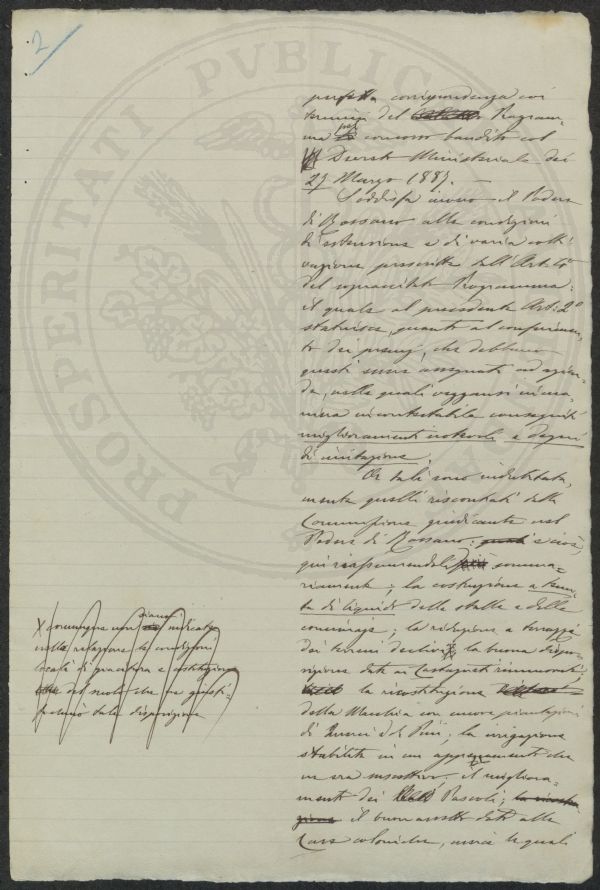 2
PROSPERITATI PVBLICAE
perfetta corrispondenza coi
termini del Program-
ma pel concorso bandito col
Decreto Ministeriale dei
27 Marzo 1887. —
Soddisfa invero il Podere
di Bossano alle condizioni
di estensione e di varia colti-
vazione prescritte dall'Art. 4º
del sopraccitato Programma:
il quale al precedente Art. 2º
statuisce, quanto al conferimen-
to dei premj, che debbano
questi essere assegnati ad azien-
de, nelle quali veggansi in ma-
niera incontestabile conseguiti
miglioramenti notevoli e degni
di imitazione.
Or tali sono indubitata-
mente quelli riscontrati dalla
Commissione giudicante nel
Podere di Bossano: e cioè,
qui riassumendoli somma-
riamente; la costruzione a tenu-
ta di liquido delle stalle e delle
concimaje; la riduzione a terrazze
dei terreni declivi; la buona dispo-
sizione data ai Castagneti rinnovati;
la ricostituzione
della Macchia con nuove piantagioni
di Querci e di Pini; la irrigazione
stabilita in un appezzamento che
ne era
il migliora-
mento dei Pascoli;
il buon assetto dato alle
Case coloniche, mercè le quali
X comunque non siano indicate
nella relazione le condizioni
locali di giacitura e costituzione
del suolo che ne giusti-
fichino tale disposizione